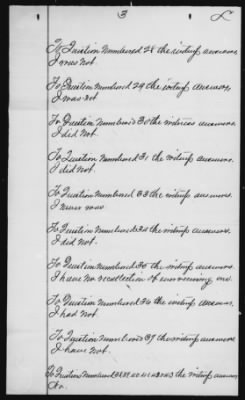 3
To Question Numbered 28 the witness answers,
I was not.
To Question Numbered 29 the witness answers,
I was not
To Question Numbered 30 the witness answers.
I did not.
To Question Numbered 31 the witness answers.
I did not.
To Question Numbered 33 the witness answers.
I never was
To Question Numbered 34 the witness answers.
I did not.
To Question Numbered 35 the witness answers.
I have no recollection of ever receiving any.
To Question Numbered 36 the witness answers.
I had not
To Question Numbered 37 the witness answers
I have not.
To Question Numbered 38 39 40 41 42 43 the witness answers